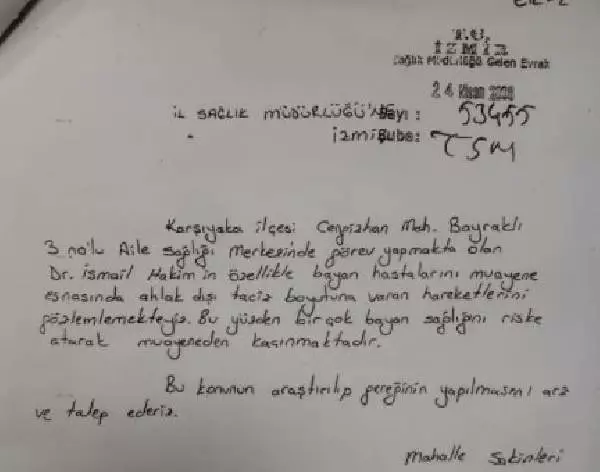 T.C.
İZMİR
Sağlık Müdürlüğü Gelen Evrak
24 Nisan
İL SAĞLIK MÜDÜRLÜĞÜ'NE Sayı : 53455
İzmir Şube: TSM
Karşıyaka ilçesi Cengizhan Mah. Bayraklı
3 no'lu Aile sağlığı merkezinde görev yapmakta olan
Dr. İsmail Hakim'in özellikle bayan hastalarını muayene
esnasında ahlak dışı taciz boyutuna varan hareketlerini
gözlemlemekteyiz. Bu yüzden bir çok bayan sağlığını riske
atarak muayeneden kaçınmaktadır.
Bu konunun araştırılıp gereğinin yapılmasını arz
ve talep ederiz.
Mahalle Sakinleri